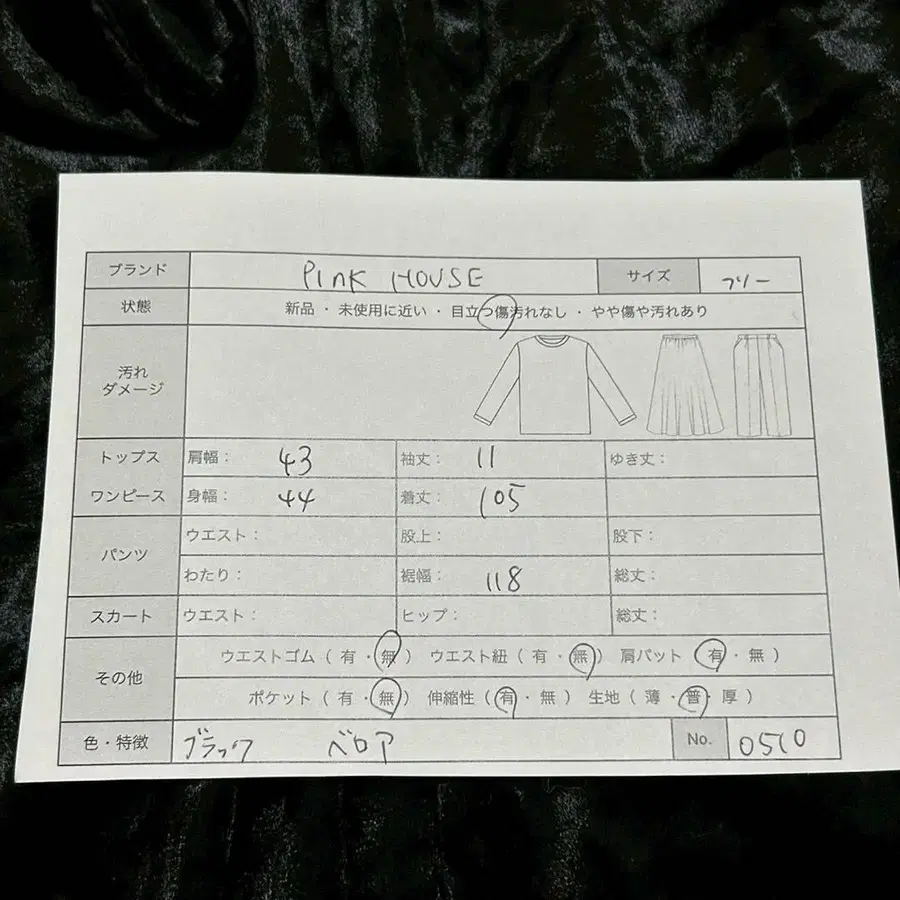 ブランド PINK HOUSE サイズ フリー
状態 新品 ・ 未使用に近い ・ 目立つ傷汚れなし ・ やや傷や汚れあり
汚れ
ダメージ
トップス 肩幅: 43 袖丈: 11 ゆき丈:
ワンピース 身幅: 44 着丈: 105
パンツ ウエスト: 股上: 股下:
わたり: 裾幅: 118 総丈:
スカート ウエスト: ヒップ: 総丈:
その他 ウエストゴム ( 有 ・ 無 ) ウエスト紐 ( 有 ・ 無 ) 肩パット ( 有 ・ 無 )
ポケット ( 有 ・ 無 ) 伸縮性 ( 有 ・ 無 ) 生地 ( 薄 ・ 普 ・ 厚 )
色・特徴 ブラック ベロア No. 0510